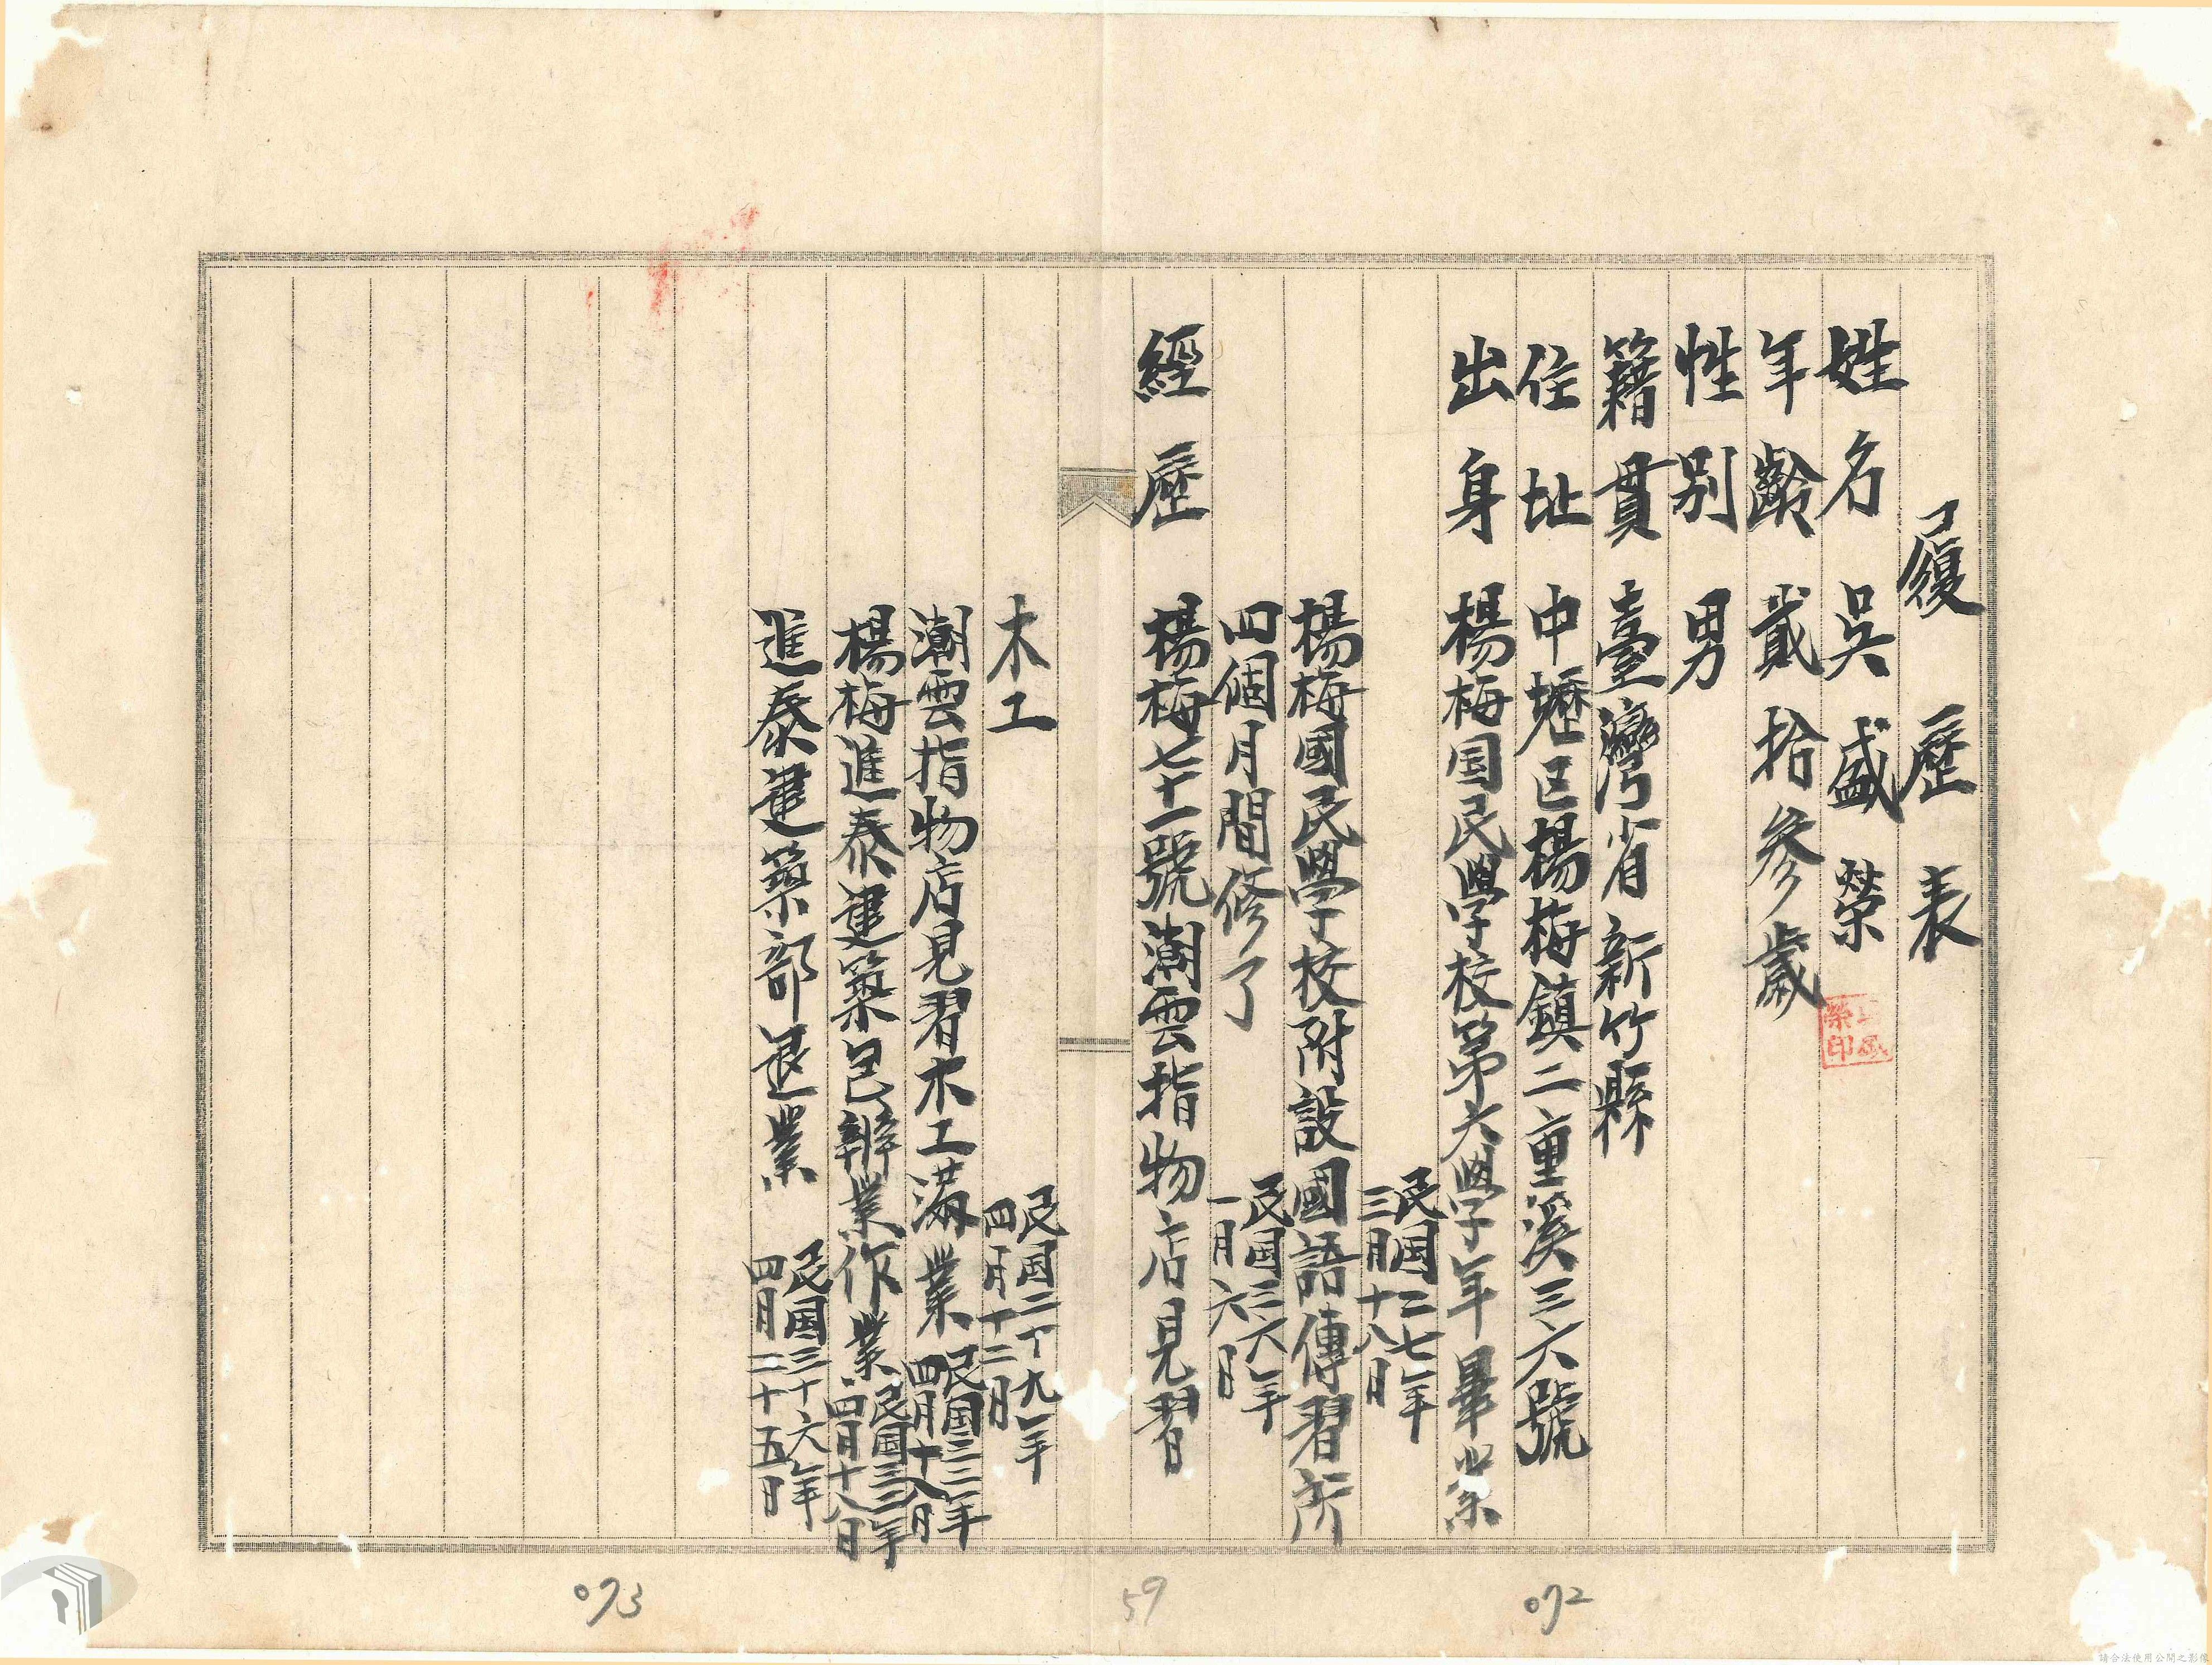 履歷表
姓名 吳盛榮
榮印
年齡 貳拾參歲
性別 男
籍貫 臺灣省新竹縣
住址 中壢区楊梅鎮二重溪三六號
出身 楊梅国民學校第六學年畢業
民國二七年
三月十八日
楊梅國民學校附設國語傳習所
四個月間修了
民國三六年
一月六日
經歷 楊梅七十一號潮雲指物店見習
木工
民国二十九年
四月十二日
潮雲指物店見習木工満業
民国三三年
四月十八日
楊梅進泰建築包辦業作業
民国三三年
四月十八日
進泰建築部退業
民國三十六年
四月二十五日
073
59
072
請合法使用公開之影像